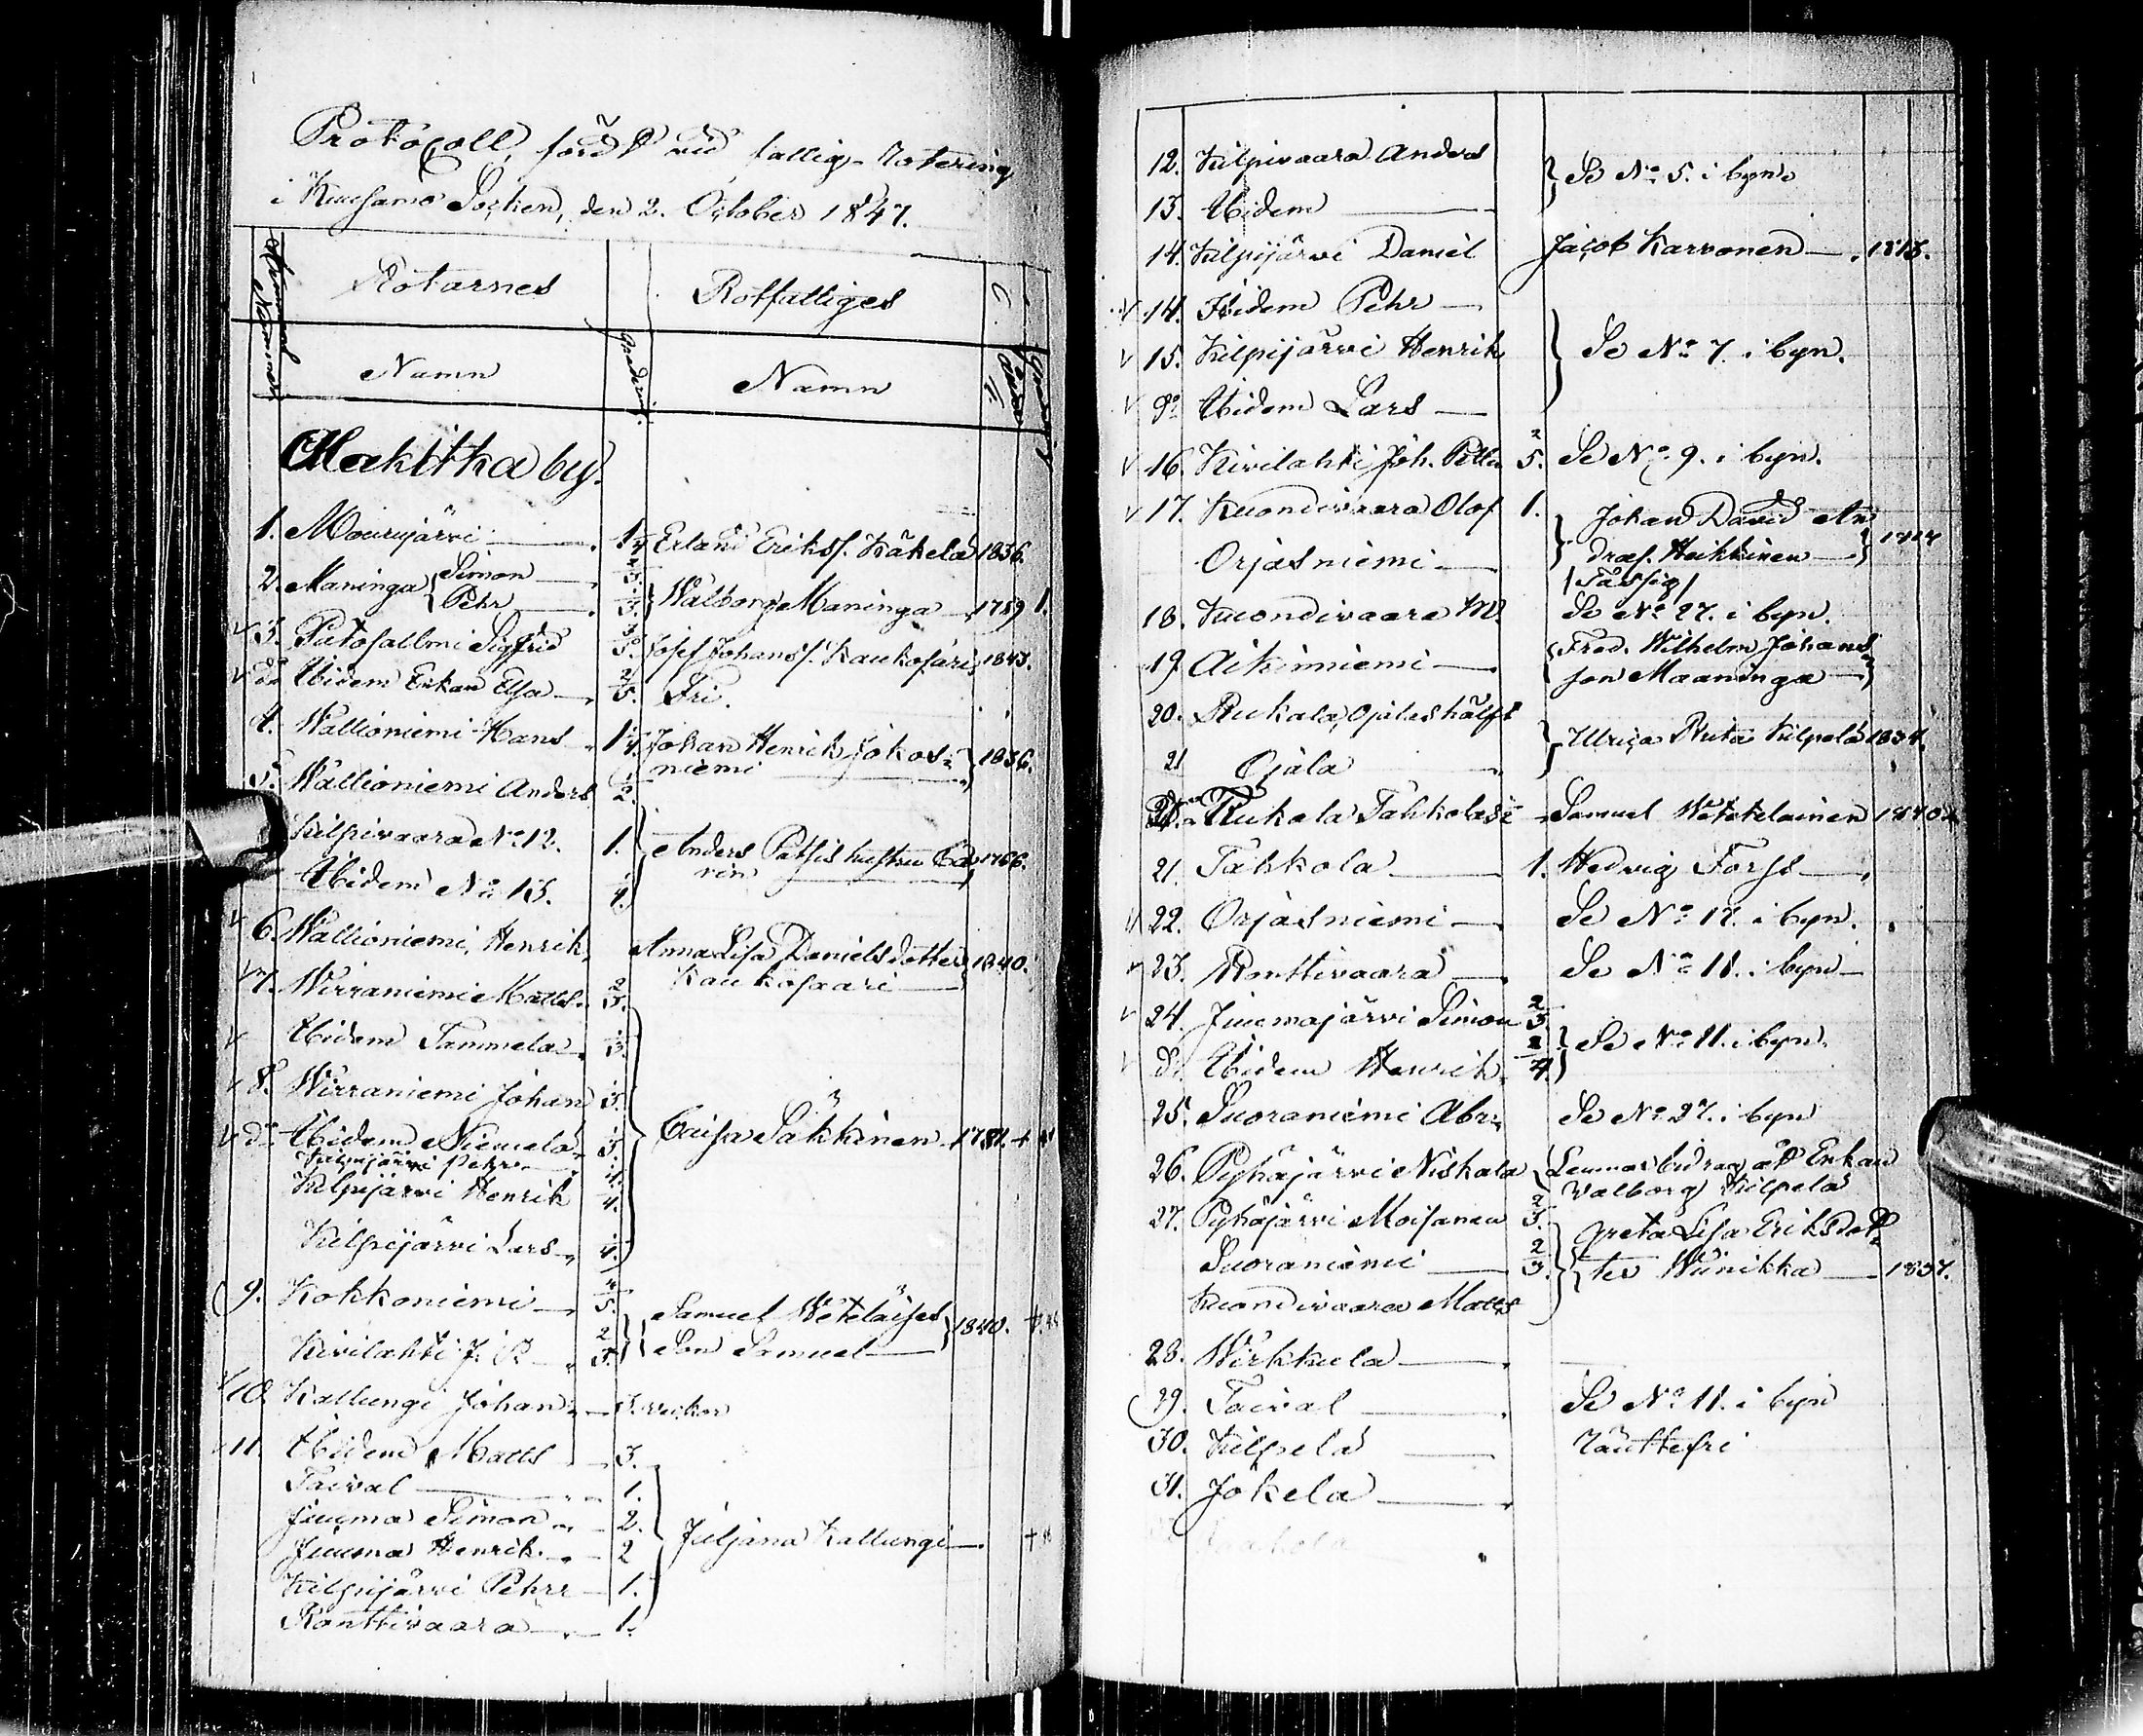 Protocoll, fördt vid fattig-Rotering
i Kuusamo Socken, den 2. October 1847.
Hemmans Nummer
Rotarnes
Rotfattiges
Namn
Namn
Makitka by.
1. Mourujärvi 1/4 Erland Erikss. Käkelä 1836.
2. Maninga { Simon
Pehr } Walborg Maninga 1759 1.
3. Putosallmi Sigfrid Josef Johanss. Kaukosari 1843.
do Ibidem Enkan Elsa 2/5. Fri.
4. Wallioniemi Hans 1/4. Johan Henrik Jokos-
niemi 1836.
5. Wallioniemi Anders 1/2.
Kilpivaara No 12. 1. Anders Patsis hustru Ca-
rin 1766.
Ibidem No 13.
6. Wallioniemi, Henrik Anna Lisa Danielsdotter 1840.
Kaukosaari
7. Wirraniemi Matts 2/3.
Ibidem Tammela 1/3.
8. Wirraniemi Johan
do Ibidem Niemelä Caisa Säkkinen 1781. +
Kilpijärvi Pehr
Kilpijärvi Henrik 1/4.
Kilpijärvi Lars 1/4.
9. Kokkoniemi 4/5. Samuel Wetelaises
Son Samuel 1840. +
Kivilahti J. P.
10. Kallungi Johan 3. veckor
11. Ibidem Matts 3.
Taival 1.
Juuma Simon 2.
Juuma Henrik 2 Juljana Kallungi +
Kilpijärvi Pehr 1.
Ronttivaara 1.
12. Kilpivaara Anders
} Se No 5. i byn
13. Ibidem
14. Kilpijärvi Daniel Jacob Karvonen 1813.
14. Ibidem Pehr
15. Kilpijärvi Henrik } Se No 7. i byn.
do Ibidem Lars
16. Kivilahti Joh. Petter 2/5. Se No 9. i byn.
17. Kuondivaara Olof 1. Johan David An
dras. Heikkinen
Orjasniemi
18. Kuondivaara M. Se No 27. i byn.
19. Aikinniemi Fred. Wilhelm Johans
son Maaninga
20. Rukala, Ojalas hälft
} Ulrica Kilpelä 1834.
21 Ojala
Rukala Tahkolas Samuel Wetelainen 1840
21. Tahkola 1. Hedvig Forss
22. Orjasniemi Se No 17. i byn.
23. Ronttivaara Se No 11. i byn
24. Juumajärvi Simon 2/3.
} Se No 11. i byn.
do Ibidem Henrik 2/4.
25. Suoraniemi Abr. Se No 27. i byn
26. Pyhäjärvi Niskala { Lemnar bidrag åt Enkan
Walborg Kilpelä
27. Pyhäjärvi Moisanen 2/3. Greta Lisa Eriksdot
Suoraniemi 2/3. ter Wiinikka 1837.
Kuondivaara Matts
28. Wirkkula
29. Taival Se No 11. i byn
30. Kilpelä
31. Jokela